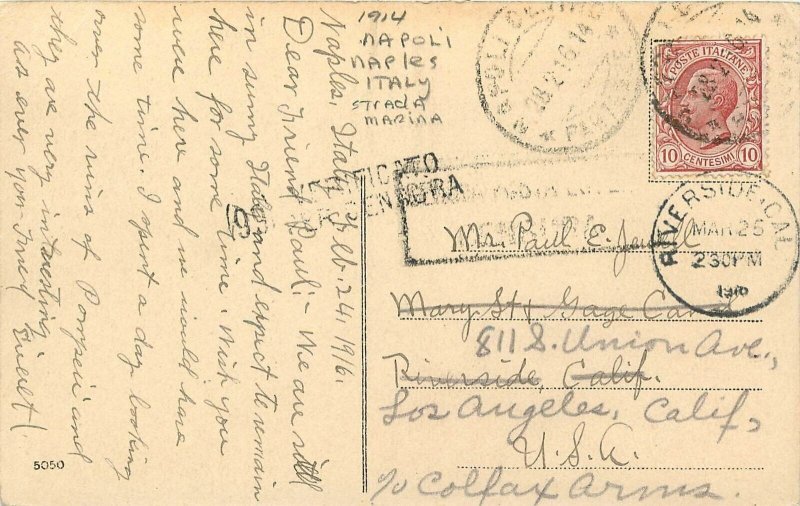 Naples, Italy, Feb. 24, 1916.
Dear Friend Paul:- We are still
in sunny Italy and expect to remain
here for some time. Wish you
were here and we would have
some time. I spent a day looking
over the ruins of Pompeii and
they are very interesting
as ever your friend
1914
NAPOLI
NAPLES
ITALY
STRADA
MARINA
28.2.16.14
POSTE ITALIANE
10 CENTESIMI 10
CENSURA
RIVERSIDE, CAL
MAR 25
230PM
1916
Mr. Paul E. Jewell
Mary St & Gage Canal
811 S. Union Ave.,
Riverside, Calif.
Los Angeles, Calif,
U.S.A.
c/o Colfax Arms.
5050